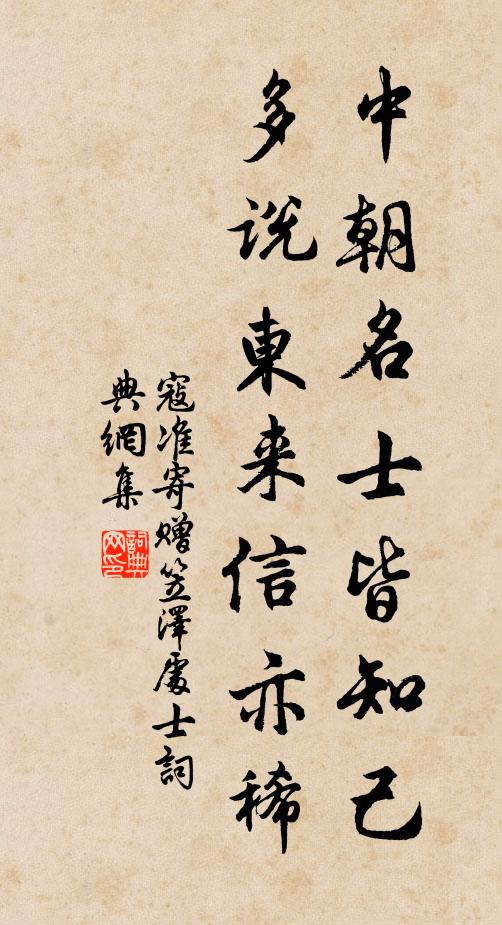 中朝名士皆知己
多说東来信亦稀
寇准寄赠笠澤處士詞
典網集
詞典
网印